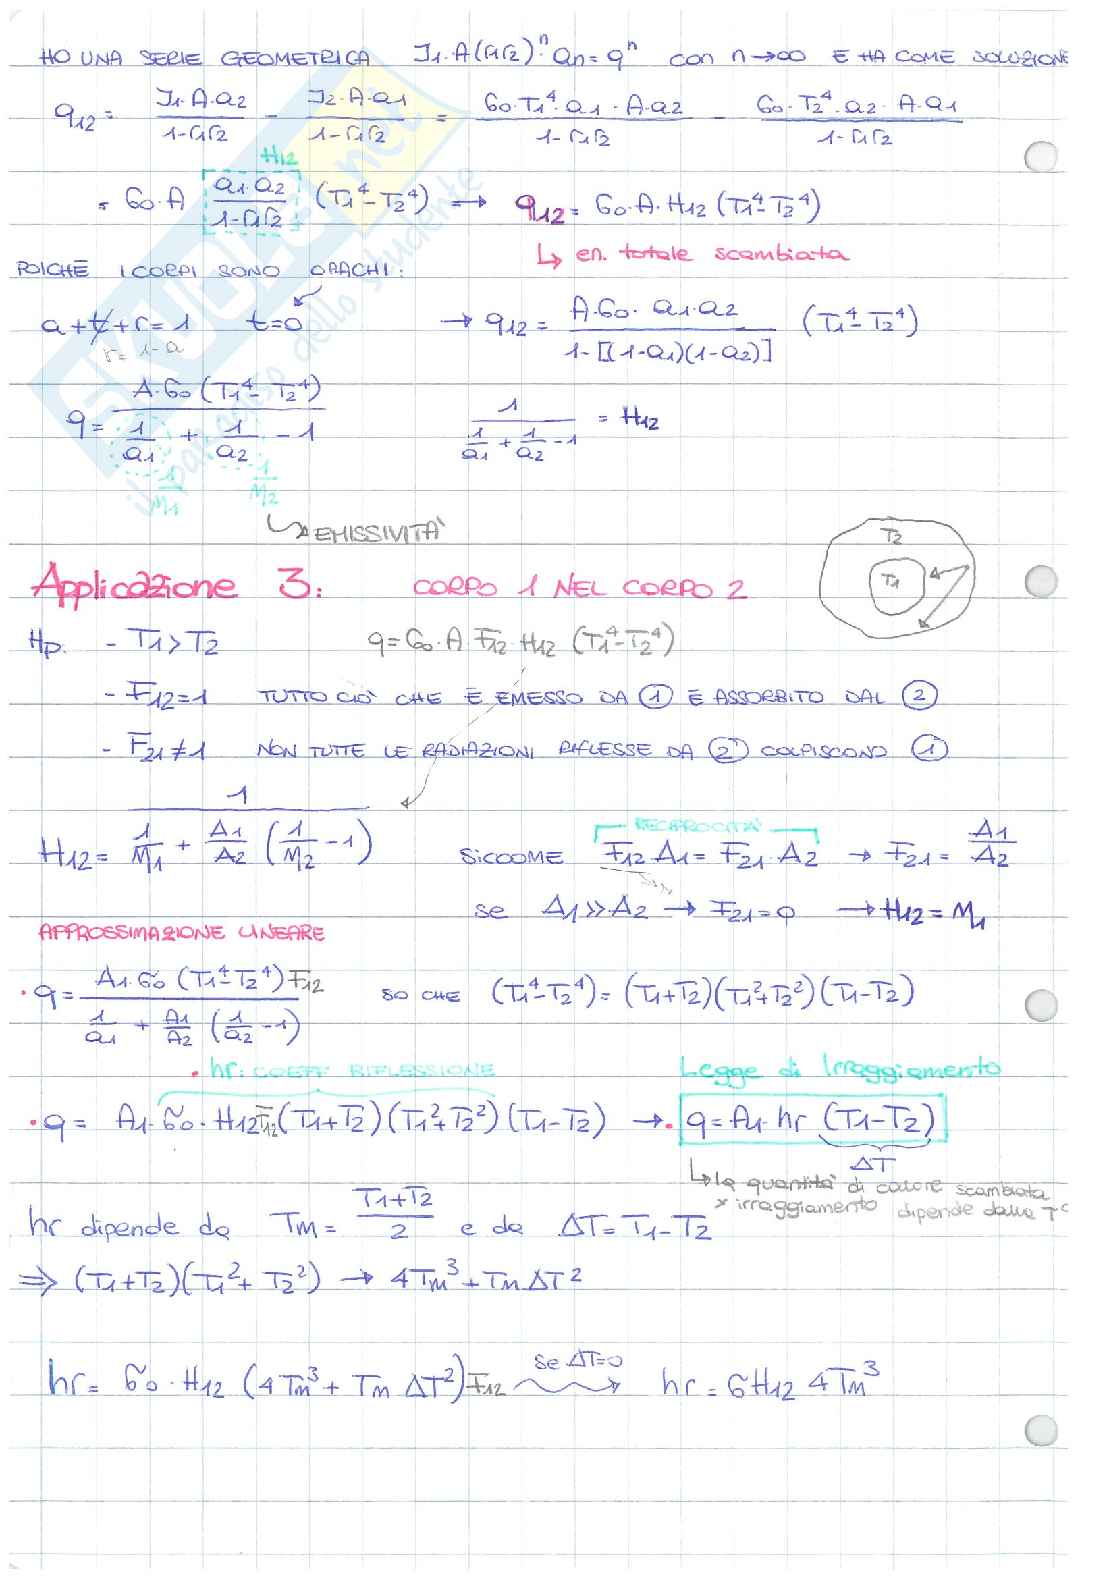 HO UNA SERIE GEOMETRICA J1·A(r1r2)^n· an=q^n con n→∞ E HA COME SOLUZIONE
q12 = J1·A·a2 / 1-r1r2 - J2·A·a1 / 1-r1r2 = σ0·T1^4·a1·A·a2 / 1-r1r2 - σ0·T2^4·a2·A·a1 / 1-r1r2
H12
= σ0·A a1·a2 / 1-r1r2 (T1^4-T2^4) → q12 = σ0·A·H12 (T1^4-T2^4)
↳ en. totale scambiata
POICHÈ I CORPI SONO OPACHI:
a+t+r=1 t=0 → q12 = A·σ0·a1·a2 / 1-[(1-a1)(1-a2)] (T1^4-T2^4)
r=1-a
q = A·σ0(T1^4-T2^4) / 1/a1 + 1/a2 - 1 1 / 1/a1 + 1/a2 - 1 = H12
1/M1 1/M2
↳ EMISSIVITÀ
Applicazione 3: CORPO 1 NEL CORPO 2
T2
T1
Hp. - T1>T2 q=σ0·A·F12·H12 (T1^4-T2^4)
- F12=1 TUTTO CIÒ CHE È EMESSO DA ① È ASSORBITO DAL ②
- F21≠1 NON TUTTE LE RADIAZIONI RIFLESSE DA ② COLPISCONO ①
H12 = 1 / 1/M1 + A1/A2 (1/M2 - 1)
RECIPROCITÀ
SICCOME F12 A1 = F21·A2 → F21 = A1/A2
se A1≫A2 → F21=0 → H12=M1
APPROSSIMAZIONE LINEARE
· q = A1·σ0 (T1^4-T2^4) F12 / 1/a1 + A1/A2 (1/a2 - 1) SO CHE (T1^4-T2^4) = (T1+T2)(T1^2+T2^2)(T1-T2)
· hr: COEFF RIFLESSIONE Legge di Irraggiamento
· q = A1·σ0·H12 F12 (T1+T2)(T1^2+T2^2)(T1-T2) → · q=A1·hr (T1-T2)
ΔT
↳ la quantità di calore scambiata
x irraggiamento dipende dalla T°
hr dipende da Tm = T1+T2 / 2 e da ΔT=T1-T2
⇒ (T1+T2)(T1^2+T2^2) → 4Tm^3+Tm ΔT^2
hr = σ0·H12 (4Tm^3 + Tm ΔT^2) F12 se ΔT=0 → hr = σH12 4Tm^3
SKUOLA.net
il paradiso dello studente